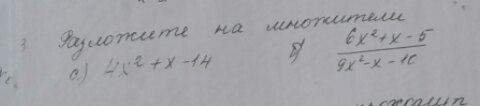 3 Разложите на множители
а) 4x²+x-14 б) (6x²+x-5)/(9x²-x-10)